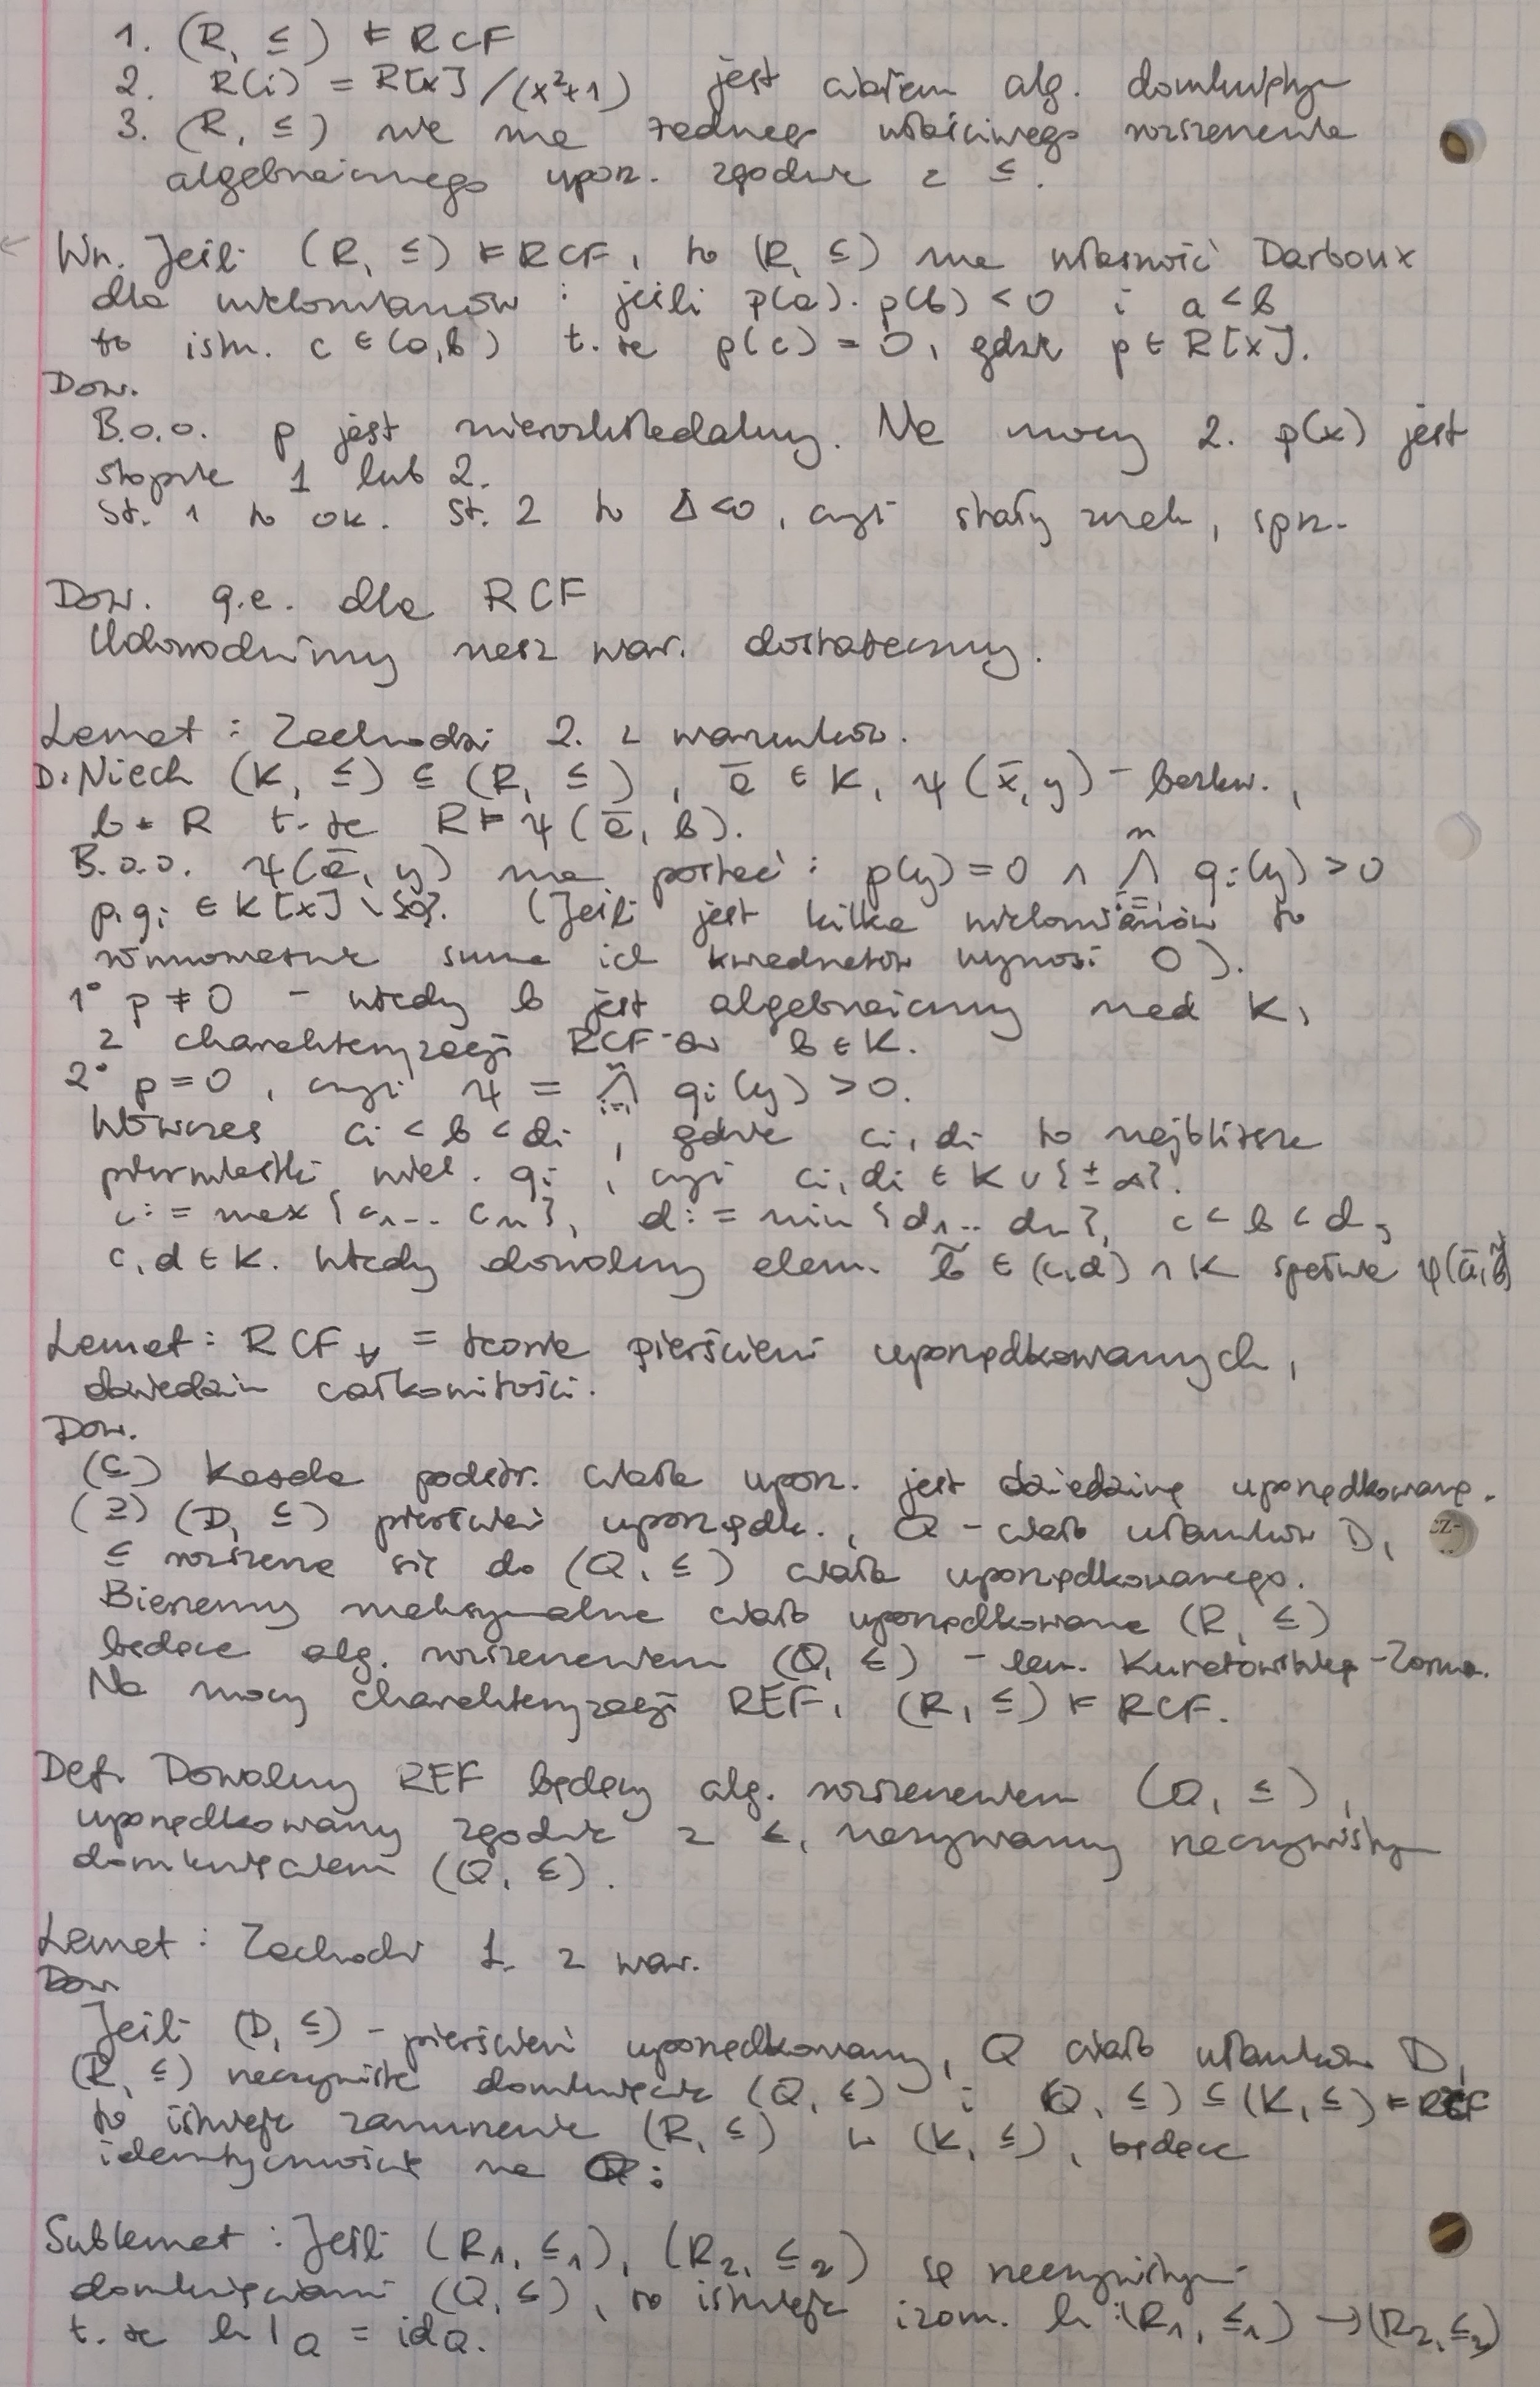 1. (R, ≤) ⊨ RCF
2. R(i) = R[x]/(x²+1) jest ciałem alg. domkniętym
3. (R, ≤) nie ma żadnego właściwego rozszerzenia
algebraicznego uporz. zgodnie z ≤.
Wn. Jeśli (R, ≤) ⊨ RCF, to (R, ≤) ma własność Darboux
dla wielomianów : jeśli p(a)·p(b) < 0 i a < b
to istn. c ∈ (a,b) t.że p(c) = 0, gdzie p ∈ R[x].
Dow.
B.o.o. p jest nierozkładalny. Na mocy 2. p(x) jest
stopnia 1 lub 2.
St. 1 to ok. St. 2 to Δ<0, czyli stały znak, sprz.
Dow. q.e. dla RCF
Udowodnimy nasz war. dostateczny.
Lemat : Zachodzi 2. z warunków.
D: Niech (K, ≤) ⊆ (R, ≤), ā ∈ K, ψ(x̄, y) – bezkw.,
b ∈ R t.że R ⊨ ψ(ā, b).
B.o.o. ψ(ā, y) ma postać : p(y) = 0 ∧ ⋀ⁿᵢ₌₁ qᵢ(y) > 0
p, qᵢ ∈ K[x] \ {0}. (Jeśli jest kilka wielomianów to
równoważnie suma ich kwadratów wynosi 0).
1° p ≠ 0 – wtedy b jest algebraiczny nad K,
z charakteryzacji RCF-ów b ∈ K.
2° p = 0, czyli ψ = ⋀ⁿᵢ₌₁ qᵢ(y) > 0.
Wówczas cᵢ < b < dᵢ, gdzie cᵢ, dᵢ to najbliższe
pierwiastki wiel. qᵢ, czyli cᵢ, dᵢ ∈ K ∪ {±∞}.
c := max {c₁... cₙ}, d := min {d₁... dₙ}, c < b < d,
c, d ∈ K. Wtedy dowolny elem. b̃ ∈ (c,d) ∩ K spełnia ψ(ā, b̃)
Lemat: RCF∀ = teoria pierścieni uporządkowanych,
dziedzin całkowitości.
Dow.
(⊆) Każda podstr. ciała uporz. jest dziedziną uporządkowaną.
(⊇) (D, ≤) pierścień uporządk., Q – ciało ułamków D,
≤ rozszerza się do (Q, ≤) ciała uporządkowanego.
Bierzemy maksymalne ciało uporządkowane (R, ≤)
będące alg. rozszerzeniem (Q, ≤) – lem. Kuratowskiego-Zorna.
Na mocy charakteryzacji RCF, (R, ≤) ⊨ RCF.
Def. Dowolny RCF będący alg. rozszerzeniem (Q, ≤),
uporządkowany zgodnie z ≤, nazywamy rzeczywistym
domknięciem (Q, ≤).
Lemat : Zachodzi 1. z war.
Dow
Jeśli (D, ≤) – pierścień uporządkowany, Q ciało ułamków D,
(R, ≤) rzeczywiste domknięcie (Q, ≤) i (Q, ≤) ⊆ (K, ≤) ⊨ RCF
to istnieje zanurzenie (R, ≤) w (K, ≤), będące
identycznością na Q:
Sublemat : Jeśli (R₁, ≤₁), (R₂, ≤₂) są rzeczywistymi
domknięciami (Q, ≤), to istnieje izom. h : (R₁, ≤₁) → (R₂, ≤₂)
t.że h|Q = idQ.